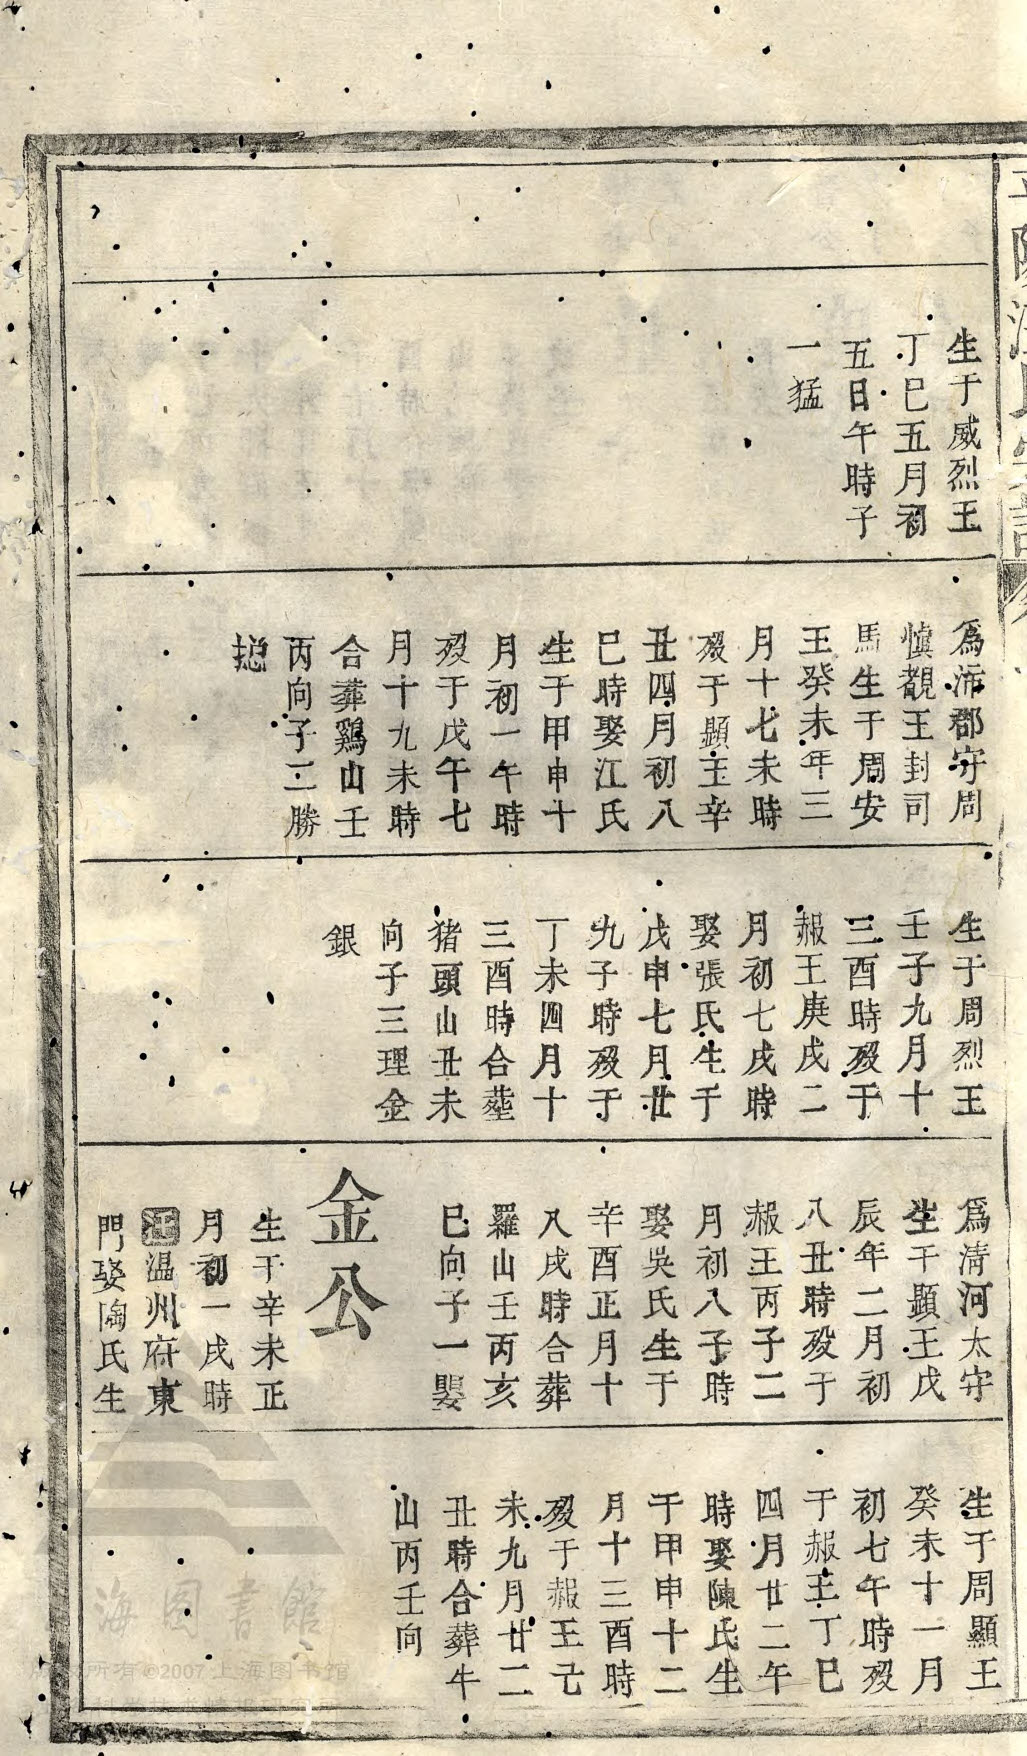 生于威烈王
丁巳五月初
五日午時子
一猛
爲沛郡守周
慎覩王封司
馬生于周安
王癸未年三
月十七未時
殁于顯王辛
丑四月初八
巳時娶江氏
生于甲申十
月初一午時
殁于戊午七
月十九未時
合葬鷄山壬
丙向子二勝
揔
生于周烈王
壬子九月十
三酉時殁于
赧王庚戌二
月初七戌時
娶張氏生于
戊申七月廿
九子時殁于
丁未四月十
三酉時合塟
猪頭山丑未
向子三理金
銀
爲清河太守
生于顯王戊
辰年二月初
八丑時殁于
赧王丙子二
月初八子時
娶吳氏生于
辛酉正月十
八戌時合葬
羅山壬丙亥
巳向子一嬰
金公
生于辛未正
月初一戌時
迁温州府東
門娶陶氏生
生于周顯王
癸未十一月
初七午時殁
于赧王丁巳
四月廿二午
時娶陳氏生
于甲申十二
月十三酉時
殁于赧王己
未九月廿二
丑時合葬牛
山丙壬向
海图書館
所有©2007上海图书馆